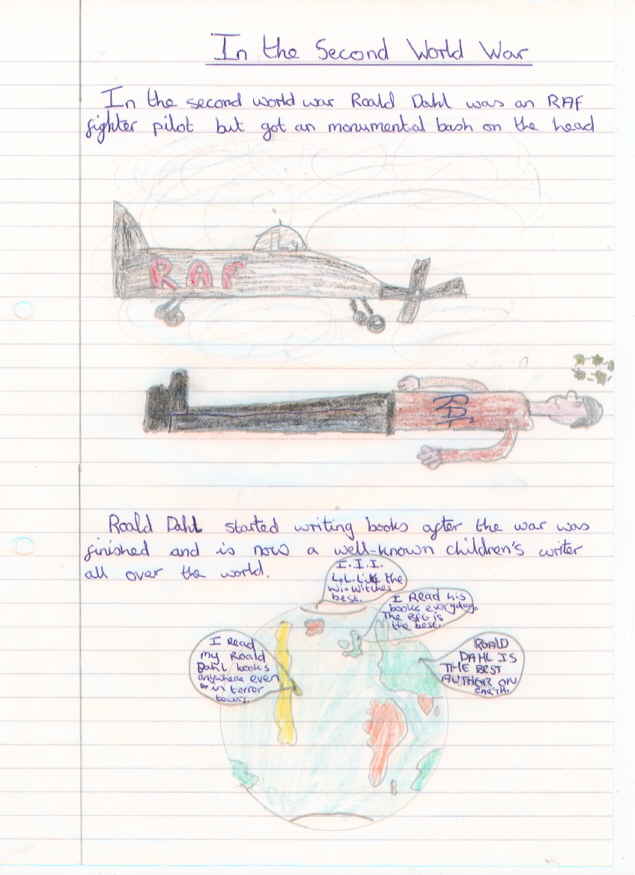 In the Second World War
In the second world war Roald Dahl was an RAF
fighter pilot but got an monumental bash on the head
RAF
Roald Dahl started writing books after the war was
finished and is now a well-known children's writer
all over the world.
I.I.I.
L.L.Like the
Wi-witches
best.
I Read his
books everyday.
The BFG is
the best.
I Read
my Roald
Dahl books
anywhere even
in terror
towers.
ROALD
DAHL IS
THE BEST
AUTHER ON
Earth.